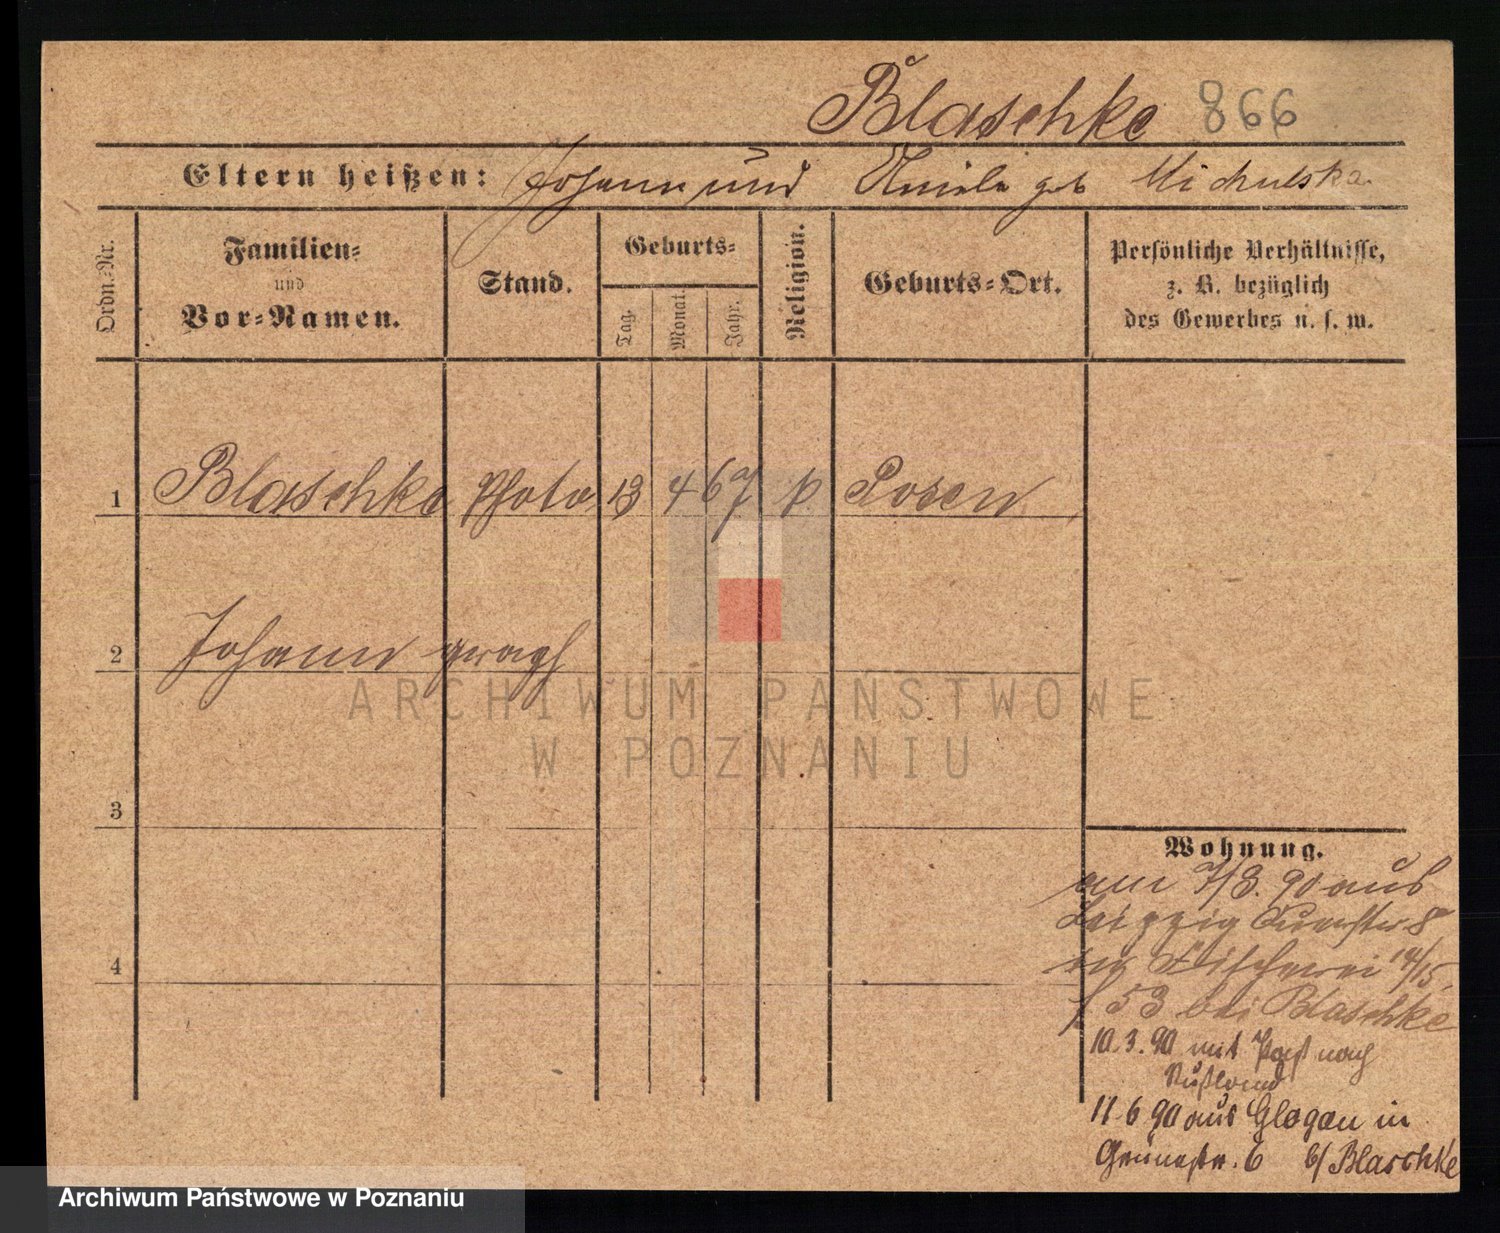 Blaschke 866
Eltern heißen: Johann und Amelie geb Michulska
Ordn.-Nr.
Familien-
und
Vor-Namen.
Stand.
Geburts-
Tag.
Monat.
Jahr.
Religion.
Geburts-Ort.
Persönliche Verhältnisse,
z. B. bezüglich
des Gewerbes u. s. w.
1 Blaschke Photo 13 4 67 k. Posen
2 Johann graph
3
4
Wohnung.
am 7/3. 90 aus
Leipzig
in Fischerei 14/15
f 53 bei Blaschke
10.3.90 mit Paß nach
Rußland
11.6 90 aus Glogau in
Grünestr. 6 b/ Blaschke
ARCHIWUM PAŃSTWOWE
W POZNANIU
Archiwum Państwowe w Poznaniu